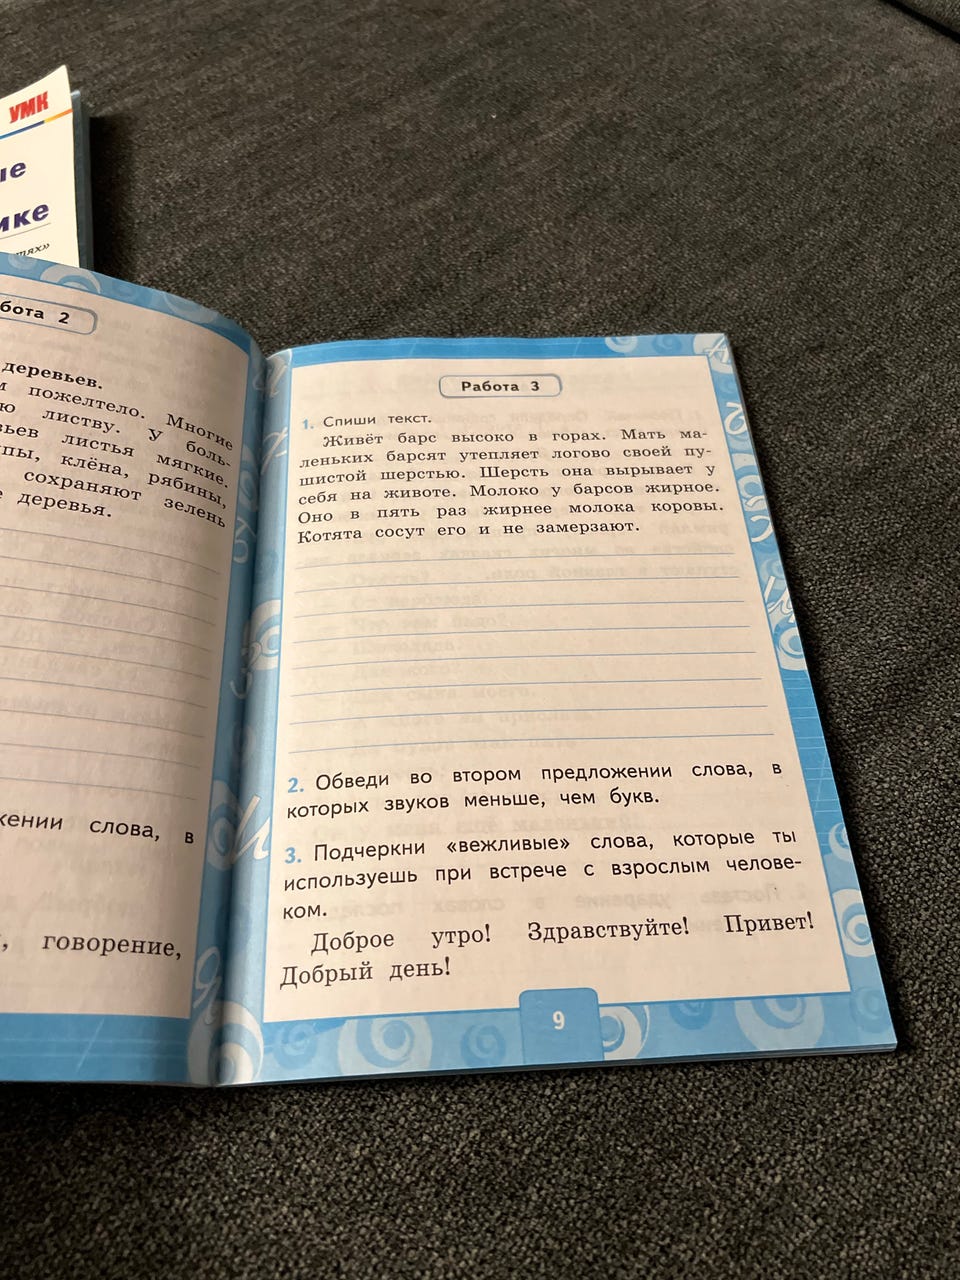 УМК
бота 2
деревьев.
пожелтело. Многие
листву. У боль-
листья мягкие.
клёна, рябины,
сохраняют зелень
деревья.
слова, в
говорение,
Работа 3
1. Спиши текст.
Живёт барс высоко в горах. Мать ма-
леньких барсят утепляет логово своей пу-
шистой шерстью. Шерсть она вырывает у
себя на животе. Молоко у барсов жирное.
Оно в пять раз жирнее молока коровы.
Котята сосут его и не замерзают.
2. Обведи во втором предложении слова, в
которых звуков меньше, чем букв.
3. Подчеркни «вежливые» слова, которые ты
используешь при встрече с взрослым челове-
ком.
Доброе утро! Здравствуйте! Привет!
Добрый день!
9